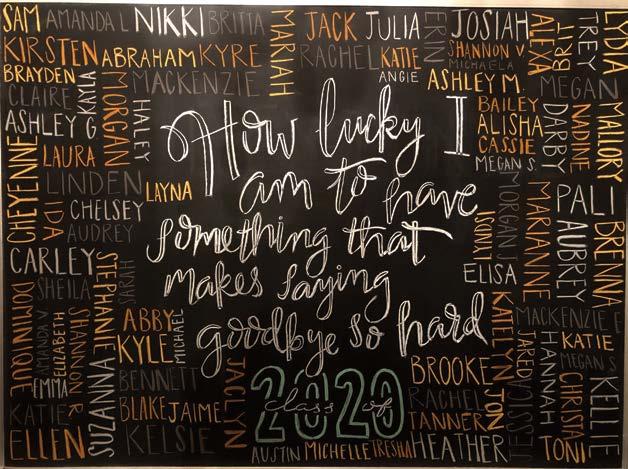 SAM AMANDA L NIKKI BRITTA MARIAH JACK JULIA ERIN JOSIAH ALEXA BRIT TREY LYDIA
KIRSTEN ABRAHAM KYRE RACHEL KATIE SHANNON V
MICHAELA
BRAYDEN KAYLA MORGAN MACKENZIE ANGIE ASHLEY M. MEGAN
CLAIRE HALEY BAILEY DARBY NADINE MALLORY
ASHLEY G ALISHA
CHEYENNE LAURA CASSIE
MEGAN S.
LINDEN LAYNA MORGAN J. MARIANNE PALI BRENNA
IDA CHELSEY LINDSY AUBREY
AUDREY
How lucky I
am to have
something that
makes saying
goodbye so hard
CARLEY STEPHANIE SARAH ELISA
SHEILA
DOMINIQUE AMANDA ELIZABETH SHANNON R ABBY MICHAEL KAITELYN MACKENZIE E
KYLE JARED HANNAH KATIE
MEGAN S
EMMA SUZANNA BENNETT JACLYN BROOKE TON CHRISTA KELLIE
KATIE BLAKE JAIME RACHEL
TANNER
ELLEN KELSIE HEATHER TONI
2020
class of
AUSTIN MICHELLE TRESHA